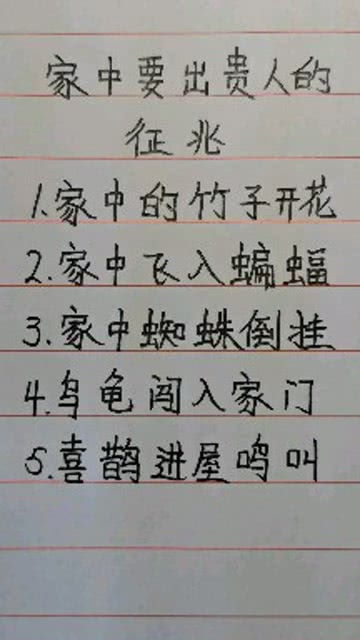 家中要出贵人的
征兆
1.家中的竹子开花
2.家中飞入蝙蝠
3.家中蜘蛛倒挂
4.乌龟闯入家门
5.喜鹊进屋鸣叫